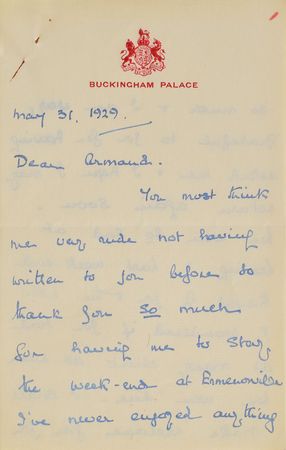 BUCKINGHAM PALACE
May 31, 1929.
Dear Armand.
You must think
me very rude not having
written to you before to
thank you so much
for having me to stay
the week-end at Ermenonville
I've never enjoyed anything